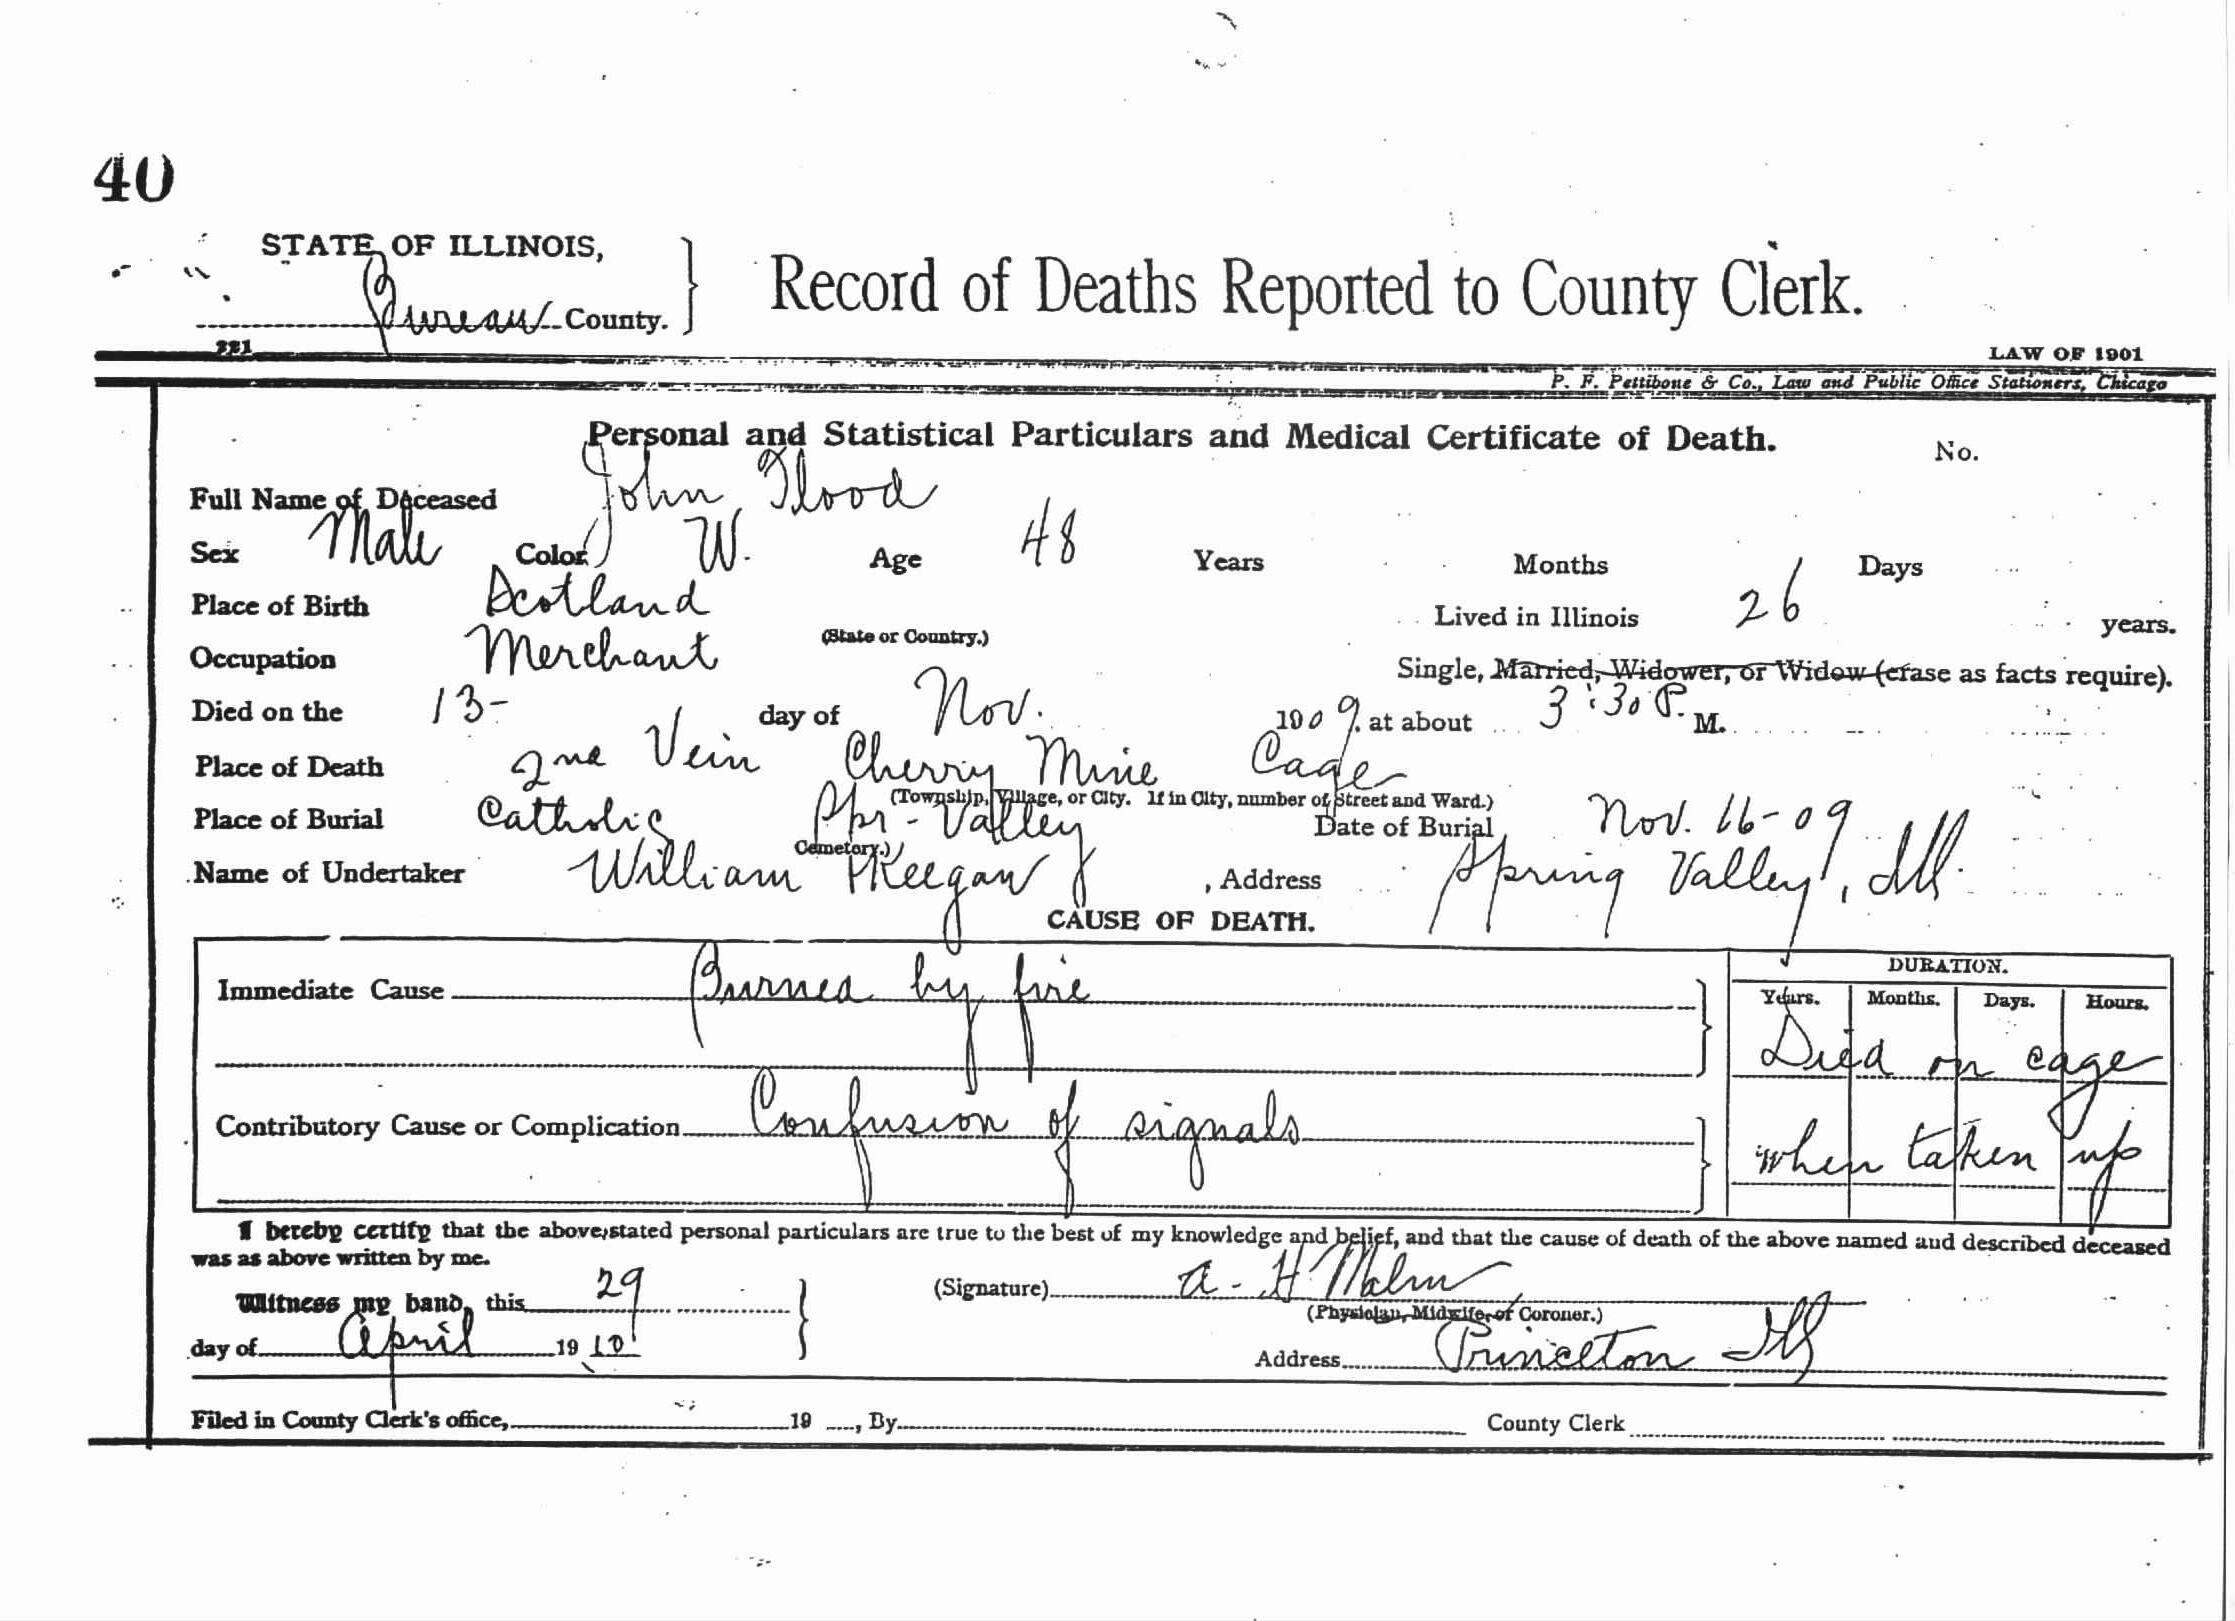 40
STATE OF ILLINOIS,
Bureau County.
Record of Deaths Reported to County Clerk.
221
LAW OF 1901
P. F. Pettibone & Co., Law and Public Office Stationers, Chicago
Personal and Statistical Particulars and Medical Certificate of Death. No.
Full Name of Deceased John Flood
Sex Male Color W. Age 48 Years Months Days
Place of Birth Scotland (State or Country.) Lived in Illinois 26 years.
Occupation Merchant Single, Married, Widower, or Widow (erase as facts require).
Died on the 13- day of Nov. 1909. at about 3:30 P. M.
Place of Death 2nd Vein Cherry Mine Cage
(Township, Village, or City. If in City, number of Street and Ward.)
Place of Burial Catholic Spr-Valley Date of Burial Nov. 16-09
Cemetery.)
Name of Undertaker William Keegan , Address Spring Valley, Ill.
CAUSE OF DEATH.
DURATION.
Immediate Cause Burned by fire Years. Months. Days. Hours.
Died on cage
Contributory Cause or Complication Confusion of signals when taken up
I hereby certify that the above stated personal particulars are true to the best of my knowledge and belief, and that the cause of death of the above named and described deceased
was as above written by me.
Witness my hand, this 29 (Signature) A. H Malm
(Physician, Midwife, or Coroner.)
day of April 1910 Address Princeton Ill
Filed in County Clerk's office, 19 , By County Clerk